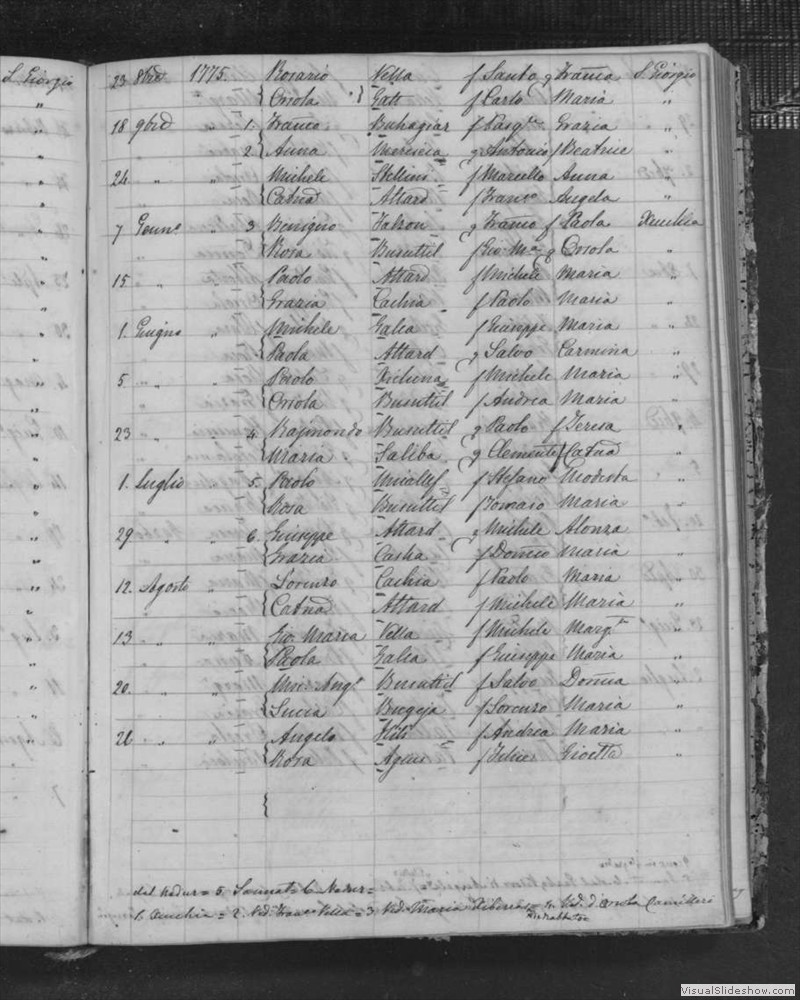 S. Giorgio
23 8bre 1775. Rosario Vella f Santo g Franca S. Giorgio
Orsola Gatt f Carlo Maria "
18 9bre 1. Franco Buhagiar f Pasqle Grazia "
2. Anna g Antonio f Beatrice "
24 " " Michele Stellini f Marcello Anna "
Catna Attard f Franco Angela "
7 Genno " 3 Benigno Falzon g Franco f Paola Xeuchia
Rosa Busuttil f Gio Ma g Orsola "
15 " " Paolo Attard f Michele Maria "
Grazia Cachia f Paolo Maria "
1. Giugno " Michele Galea f Giuseppe Maria "
Paola Attard g Salvo Carmina "
5 " " Paolo f Michele Maria "
Orsola Busuttil f Andrea Maria "
23 " 4. Rajmondo Busuttil g Paolo f Teresa "
Maria Saliba g Clemente f Catna "
1. Luglio 5. Paolo Micallef f Stefano Modesta "
Rosa Busuttil f Tomaso Maria "
29 " " 6. Giuseppe Attard g Michele Alonza "
Grazia Casha f Domco Maria "
12. Agosto " Lorenzo Cachia f Paolo Maria "
Catna Attard f Michele Maria "
13 " " Gio Maria Vella f Michele Margta "
Paola Galea f Giuseppe Maria "
20. " " Mic. Ango Busuttil f Salvo Domca "
Lucia Bugeja f Lorenzo Maria "
26 " " Angelo f Andrea Maria "
Rosa Agius f Felice Gioetta "
dal Nadur = 5. Sannat = 6. Nadur =
1. Xeuchia = 2. Ved. Franco Vella = 3 Ved. Maria = 4. Ved. d. Orsola Camilleri
VisualSlideshow.com